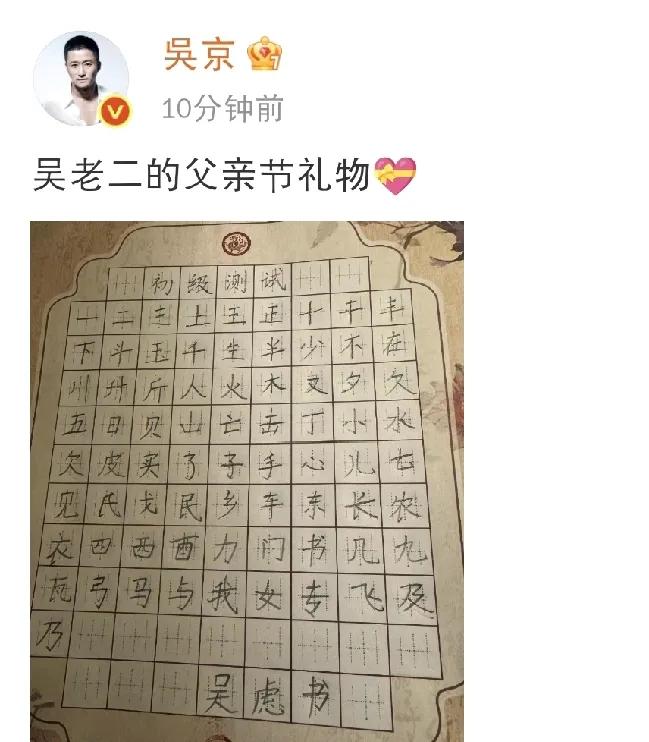 吳京
10分钟前
吴老二的父亲节礼物
初级测试
一二三上五正十干丰
下斗玉千生半少不在
州卅斤人火木叉夕久
五日贝山亡击丁小水
欠皮买了子手心儿七
见氏戈民乡车东长农
衣四西酉力门书几九
瓦弓马与我女专飞及
乃
吴虑书